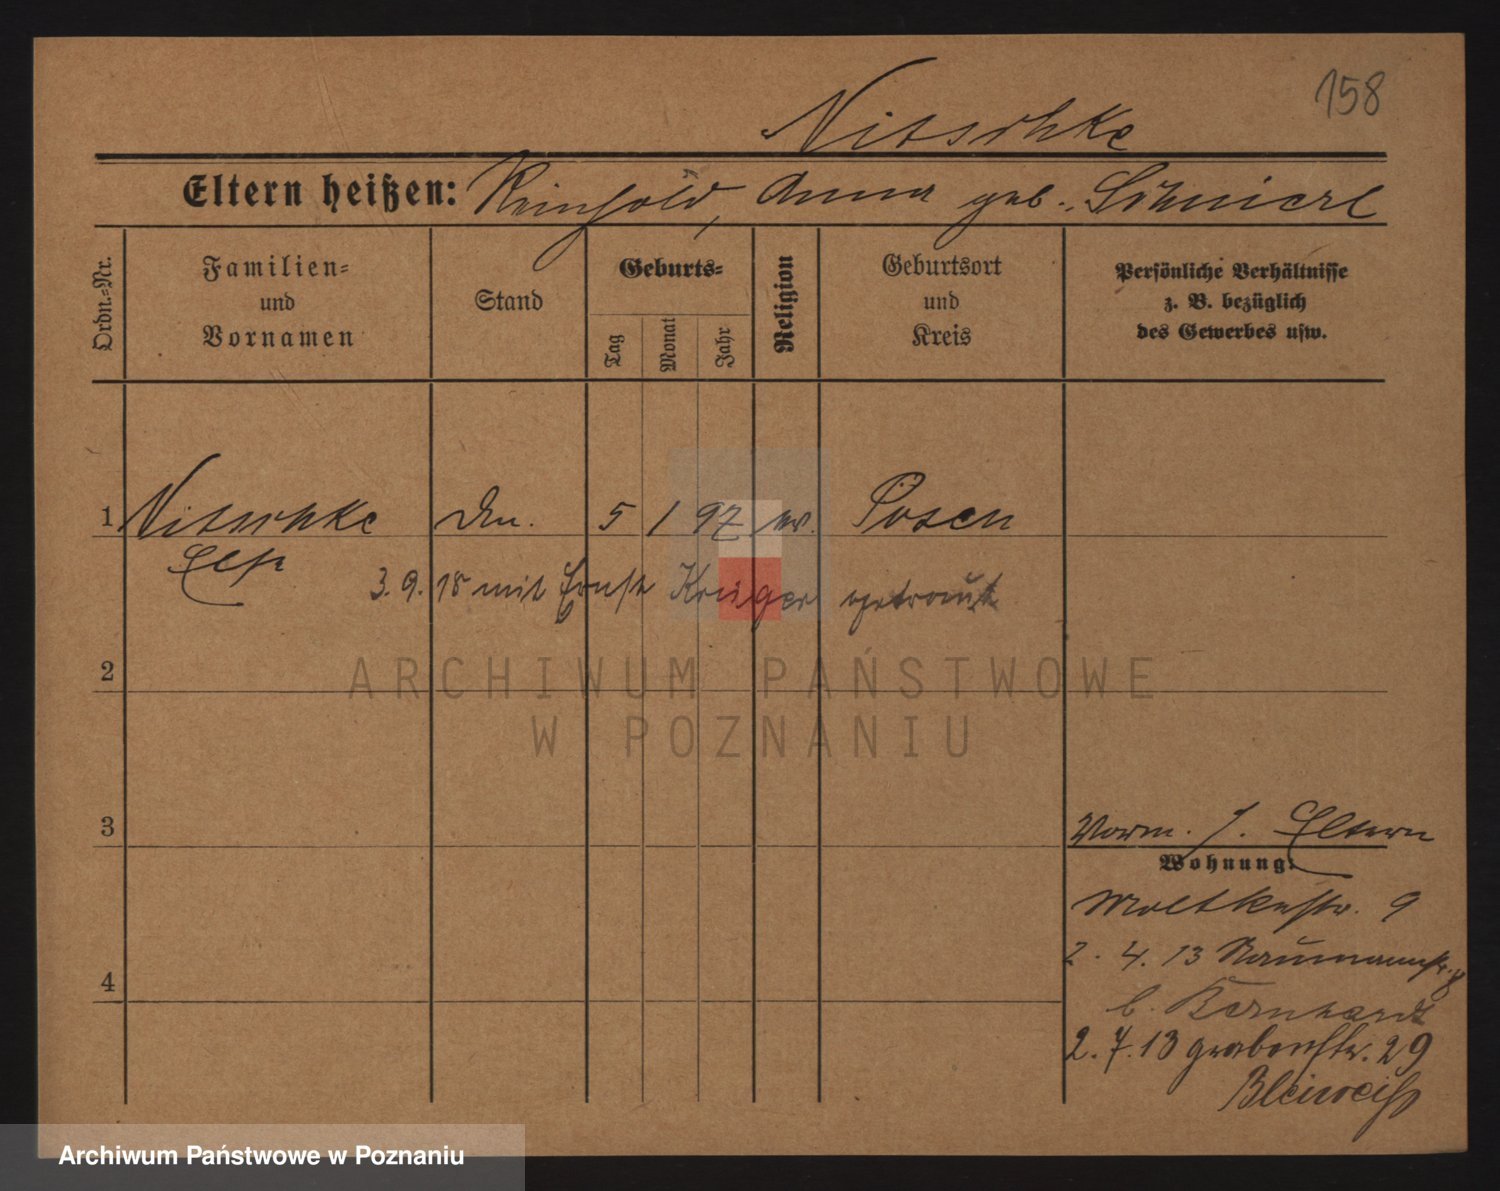 158
Nitschke
Eltern heißen: Reinhold, Anna geb. Schmierl
Ordn.-Nr.
Familien-
und
Vornamen
Stand
Geburts-
Tag
Monat
Jahr
Religion
Geburtsort
und
Kreis
Persönliche Verhältnisse
z. B. bezüglich
des Gewerbes usw.
1 Nitschke 5 1 97 ev. Posen
Else
3. 9. 18 mit Ernst Krüger getraut
2
ARCHIWUM PAŃSTWOWE
W POZNANIU
3
Vorm. s. Eltern
Wohnung:
Moltkestr. 9
4
2. 4. 13 Naumannstr. 8
b. Bernhardt
2. 7. 13 Grabenstr. 29
Bleiweiss
Archiwum Państwowe w Poznaniu